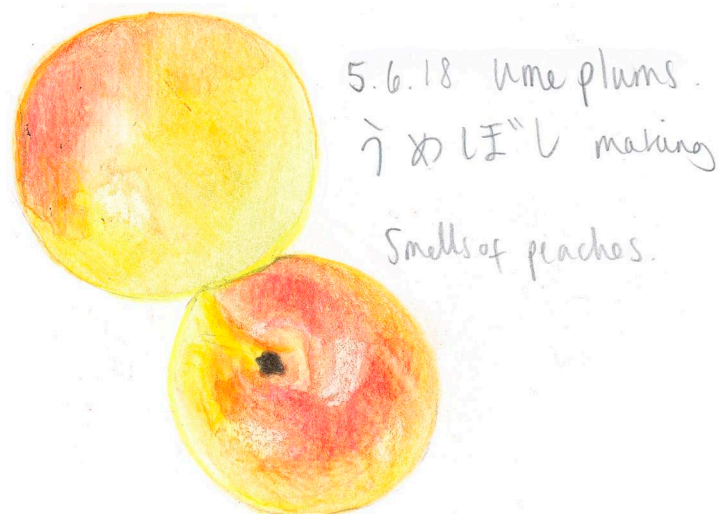 5.6.18 Ume plums.
うめぼし making
Smells of peaches.